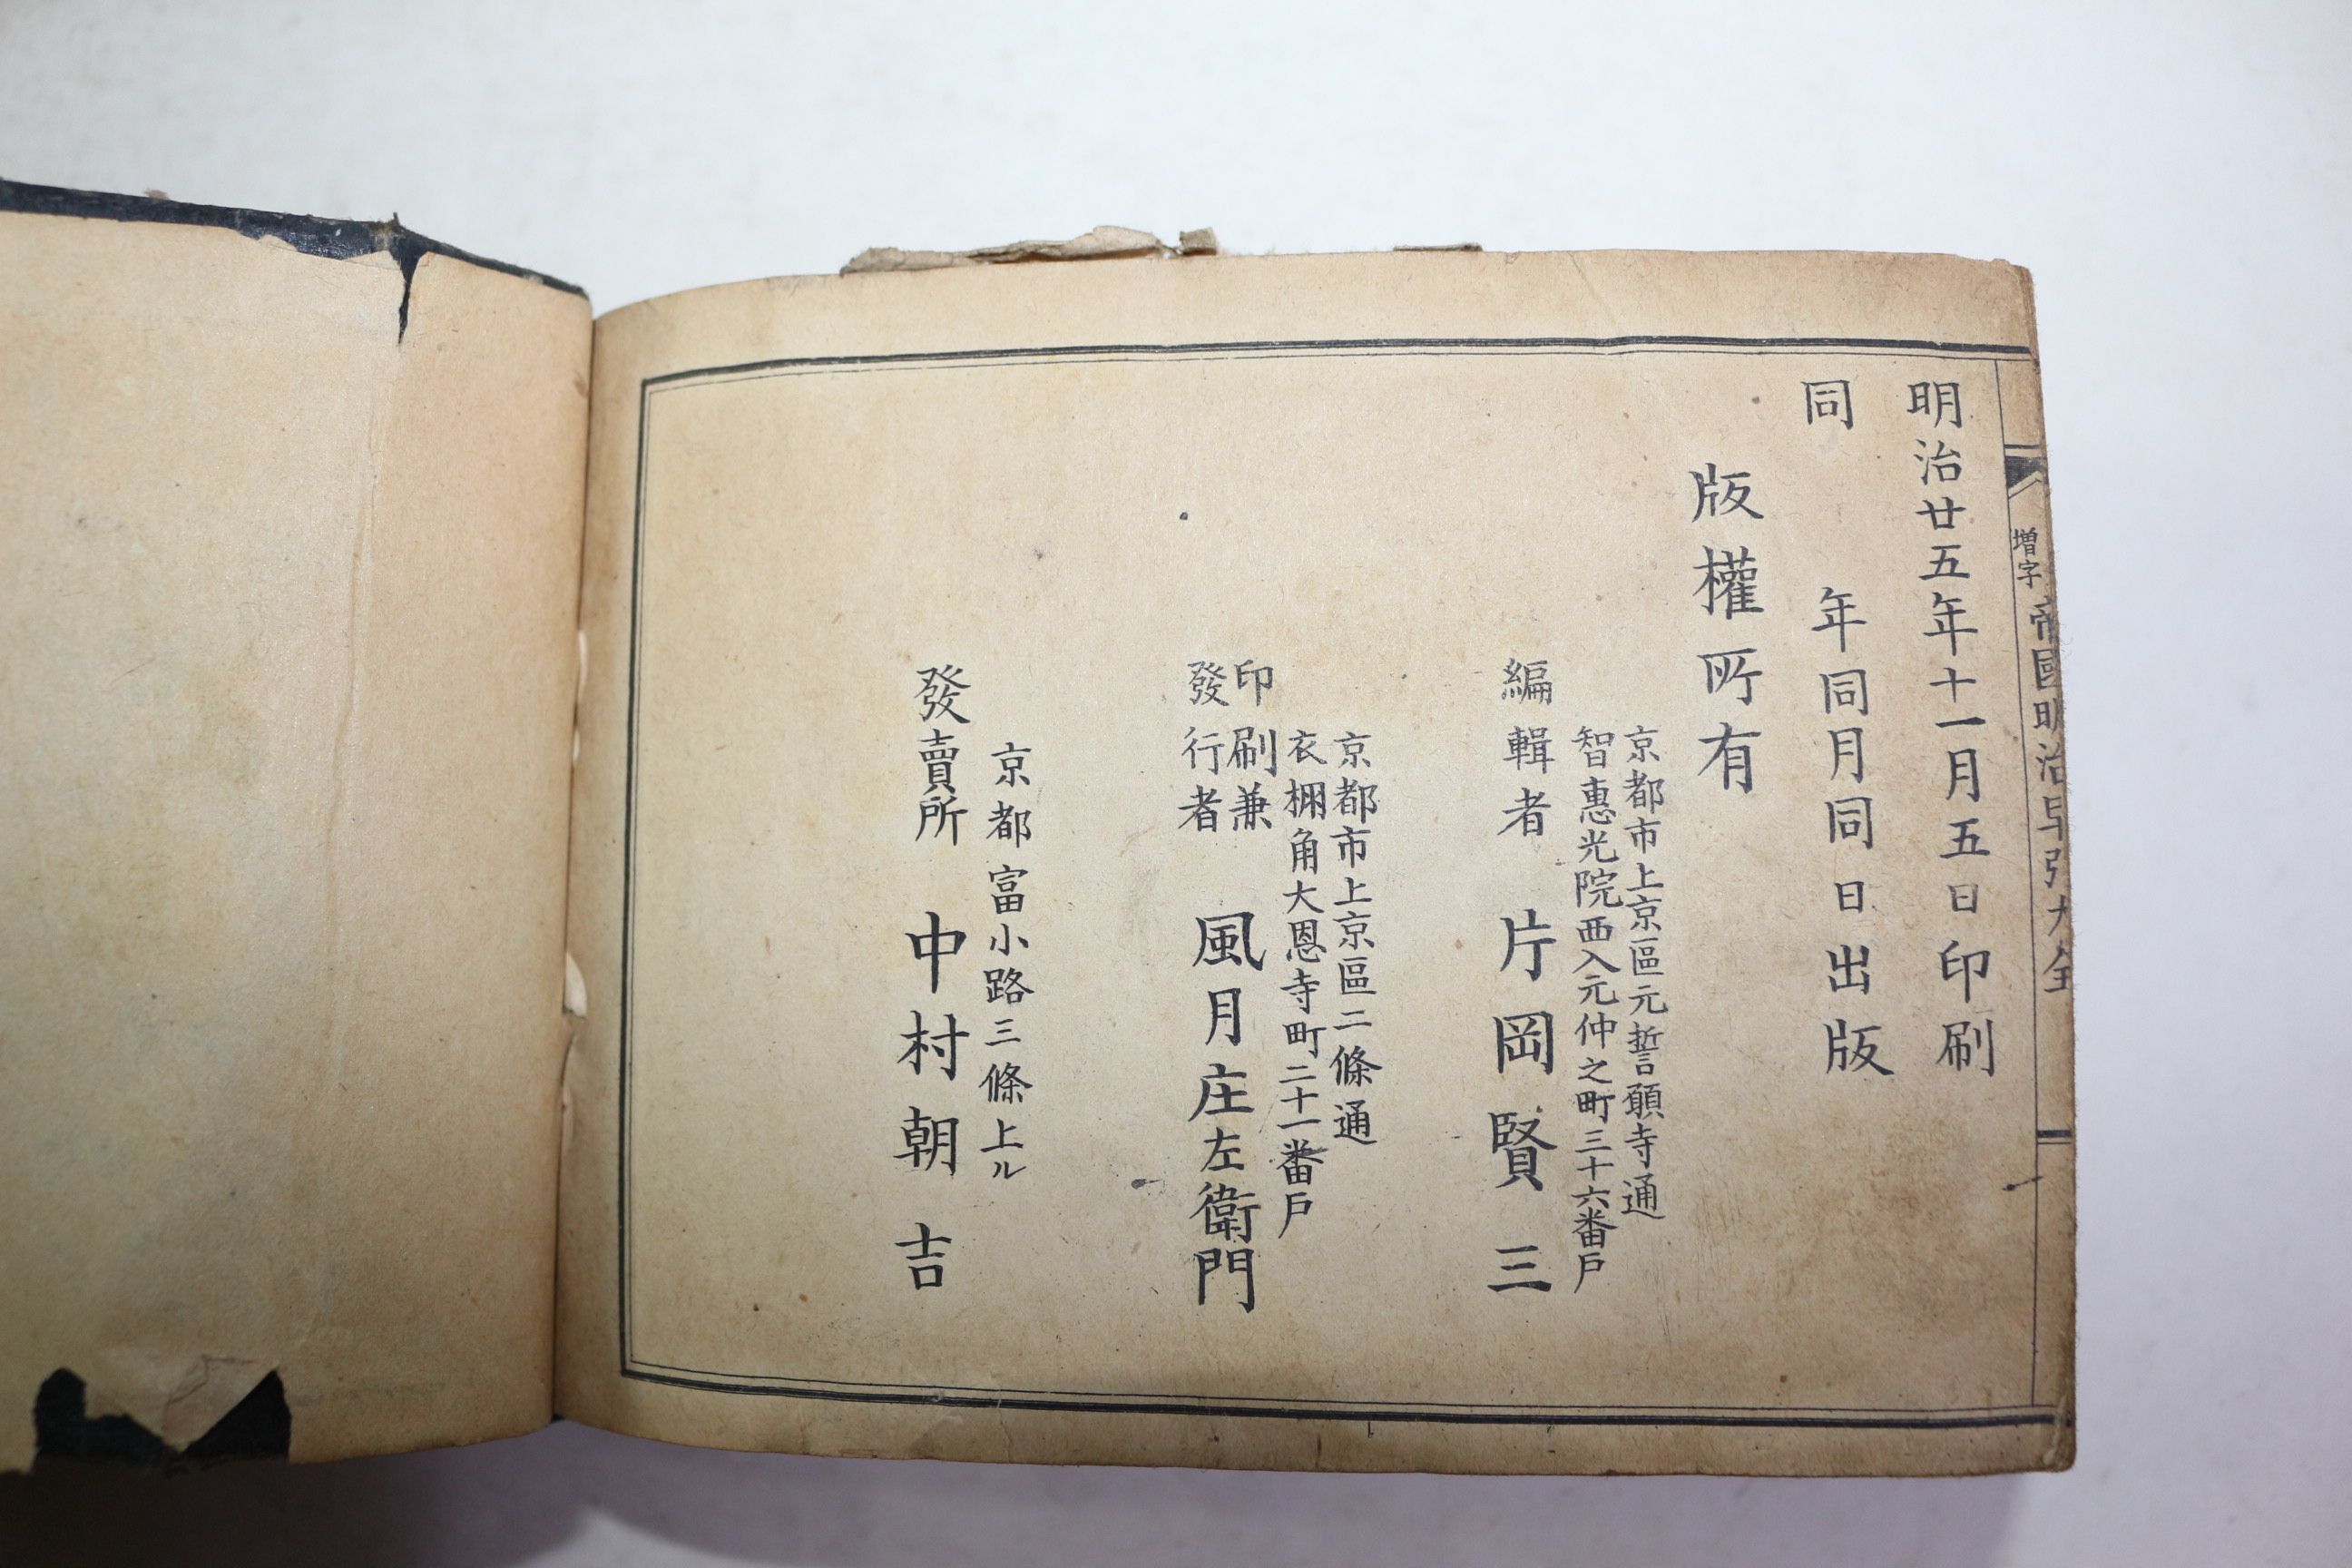 増字
帝國明治早引大全
明治廿五年十一月五日印刷
同年同月同日出版
版權所有
京都市上京區元誓願寺通
智惠光院西入元仲之町三十六番戸
編輯者 片岡賢三
京都市上京區二條通
衣棚角大恩寺町二十一番戸
印刷兼
發行者 風月庄左衛門
京都富小路三條上ル
發賣所 中村朝吉